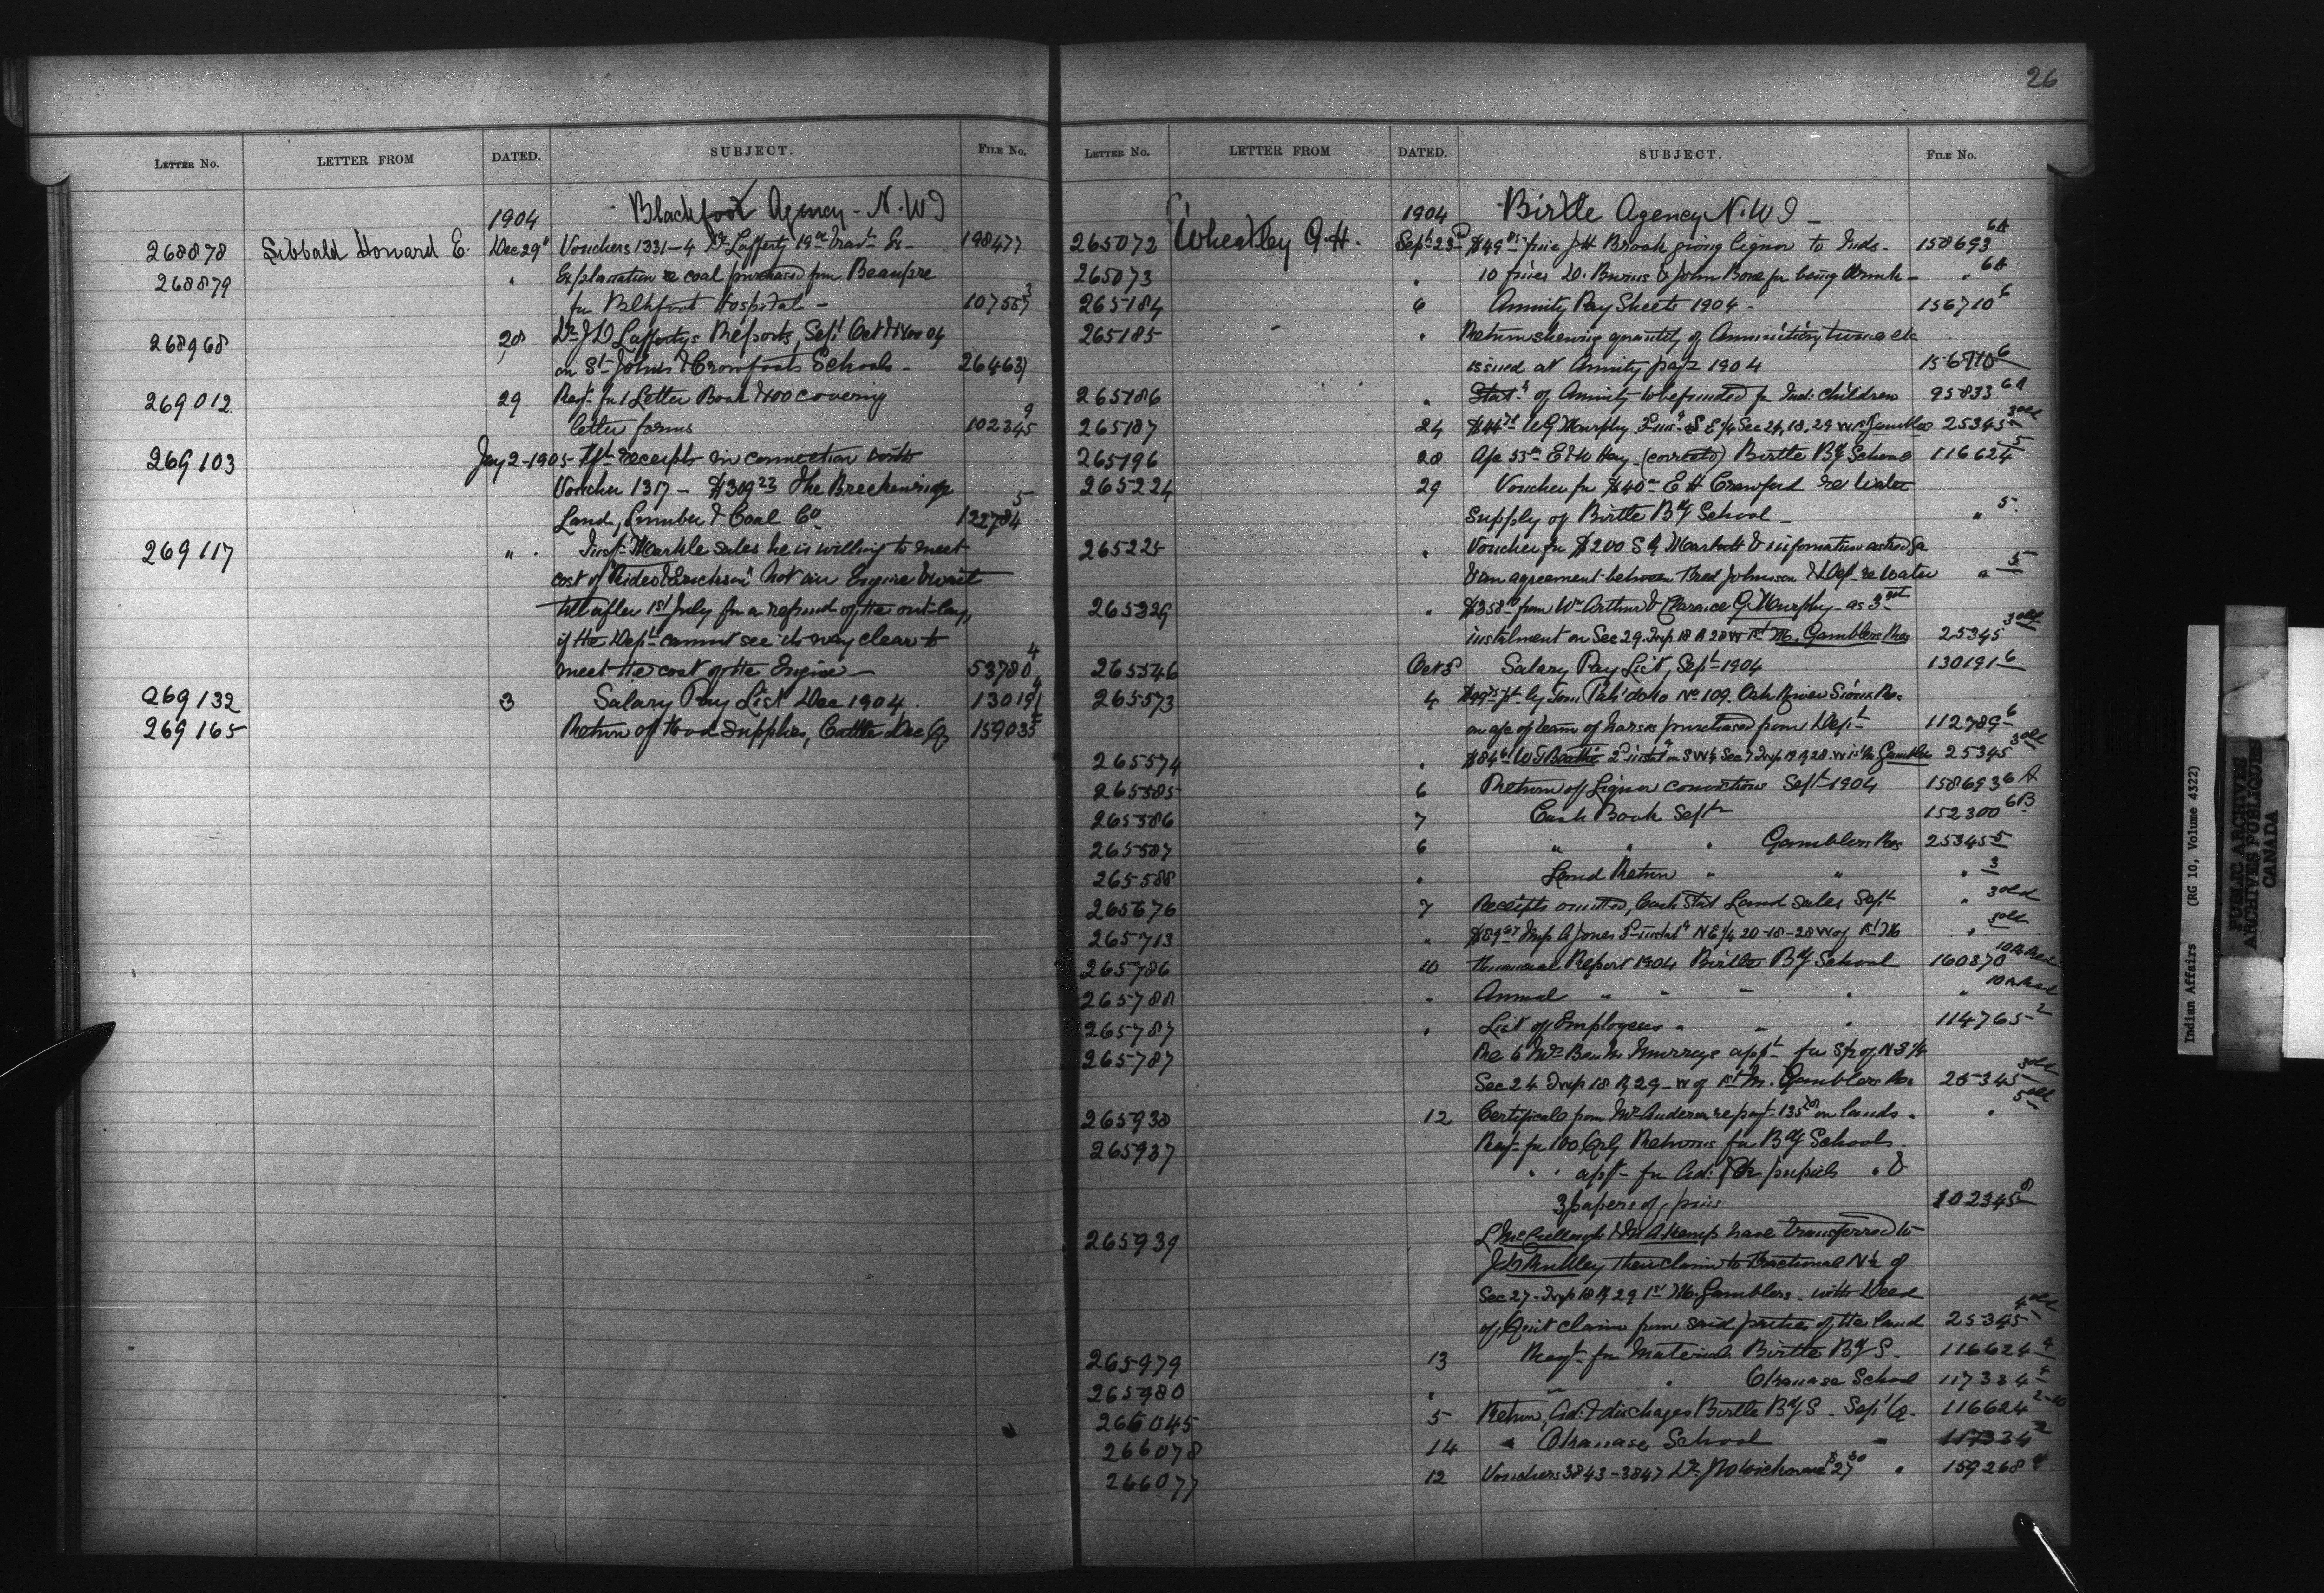 26
LETTER No. LETTER FROM DATED. SUBJECT. FILE No.
1904 Blackfoot Agency - N.W.T
268878 Sibbald Howard E. Dec 29 Vouchers 1331-4 Dr Lafferty 19 Trav Ex- 198477
268879 " Explanation re coal purchased from Beaupre
for Blkfoot Hospital - 107557 3
268968 28 Dr J D Laffertys Reports, Sept Oct & Nov 04
on St Johns & Crowfoots Schools - 26463
269012 29 Reqt for 1 Letter Book & 400 covering
letter forms 102345 9
269103 Jany 2-1905 - Frt receipts in connection with
Voucher 1317 - $309 23 The Breckenridge
Land, Lumber & Coal Co 122784 5
269117 " Insp Markle sales he is willing to meet
cost of "Rider & Erickson" Hot air Engine & wait
till after 1st July for a refund of the out-lay,
if the Dept cannot see its way clear to
meet the cost of the Engine - 53780 4
269132 3 Salary Pay List Dec 1904. 130191
269165 Return of Food Supplies, Cattle Dec Q. 159035
LETTER No. LETTER FROM DATED. SUBJECT. FILE No.
1904 Birtle Agency N.W.T -
265072 Wheatley G.H. Sept 23 $49 85 fine J H Brook giving liquor to Inds. 158693 6A
265073 " 10 fines D. Burns & John Bone for being drunk - " 6A
265184 6 Annuity Pay Sheets 1904 - 156710 6
265185 " Return shewing quantity of Ammunition, twine etc
issued at Annuity payt 1904 156710 6
265186 " Stat of Annuity to be funded for Ind: children 95833 6A
265187 24 W G Murphy S E 1/4 Sec 24, 18, 29 W 1st Gamblers 25345 3 old
265196 28 a/c E & W Hay (corrected) Birtle Bg School 116624 5
265224 29 Voucher for $40 E H Crawford re Water
Supply of Birtle Bg School - " 5
265225 " Voucher for $200 S & information asked for
& an agreement between Fred Johnson & Dept re Water " 5
265329 " $358 from Wm Arthur & Clarence G. Murphy - as 3rd
instalment on Sec 29. Twp 18 R 28 W 1st M. Gamblers Res 25345 3 old
265546 Oct 5 Salary Pay List, Sept 1904 130191 6
265573 4 by No 109. Oak River Sioux Res.
on a/c of team of horses purchased from Dept 112789 6
265574 " $84 W J Beattie 2 instal on S W 1/4 Sec 7 Twp 19 R 28 W 1st M Gamblers 25345 3 old
265585 6 Return of Liquor convictions Sept 1904 158693 6A
265586 7 Cash Book Sept 152300 6B
265587 6 " " " Gamblers Res 25345 5
265588 " Land Return " " " 3
265676 7 Receipts omitted, Cash Stat Land Sales Sept " 3 old
265713 " $89 67 A Jones 3 instal N E 1/4 20-18-28 W of 1st M " 3 old
265786 10 Financial Report 1904 Birtle Bg School 160370
265788 " Annual " " " " "
265787 " List of Employees " " " 114765 2
265787 Re to Mrs Murrays appt for
Sec 24 Twp 18 R 29 - W of 1st M. Gamblers Res 25345 3 old
265938 12 Certificate from Mr Anderson re payt 135 on lands. " 5 old
265937 Reqt for 100 Qrly Returns for Bg Schools.
" " appl for Ad: of Ch pupils " &
3 papers of pins 102345 8
265939 L McCullough & M A Kemp have transferred to
their claim to Fractional N 1/2 of
Sec 27 - Twp 18 R 29 1st M. Gamblers. with Deed
of Quit claim from said parties of the land 25345 4 old
265979 13 Reqt for Material Birtle Bg S. 116624 9
265980 " " " Okanase School 117334 5
266045 5 Return, Ad: & dischages Birtle Bg S - Sept Q. 116624 2-10
266078 14 " Okanase School " 117334 2
266077 12 Vouchers 3843-3847 Dr $27 50 " 159268
Indian Affairs (RG 10, Volume 4322)
PUBLIC ARCHIVES
ARCHIVES PUBLIQUES
CANADA